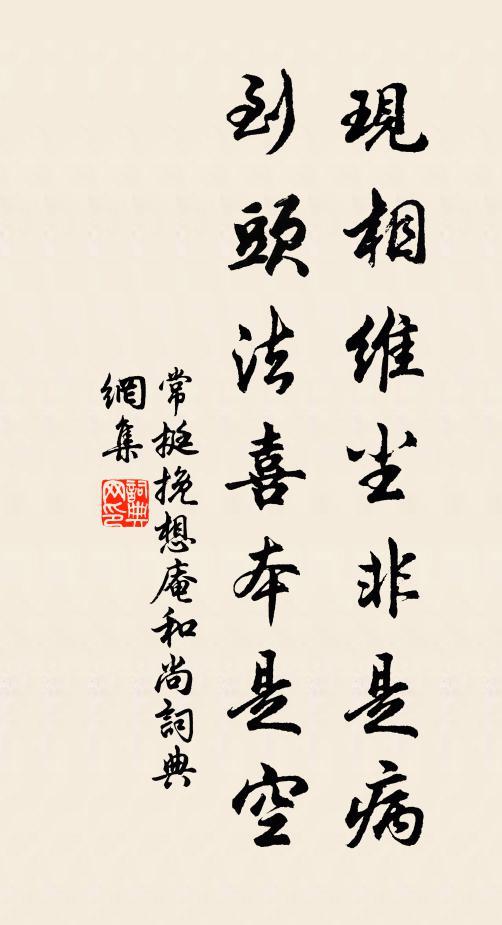 現相維尘非是病
到頭法喜本是空
常挺挽想庵和尚詞典
網集
詞典网印